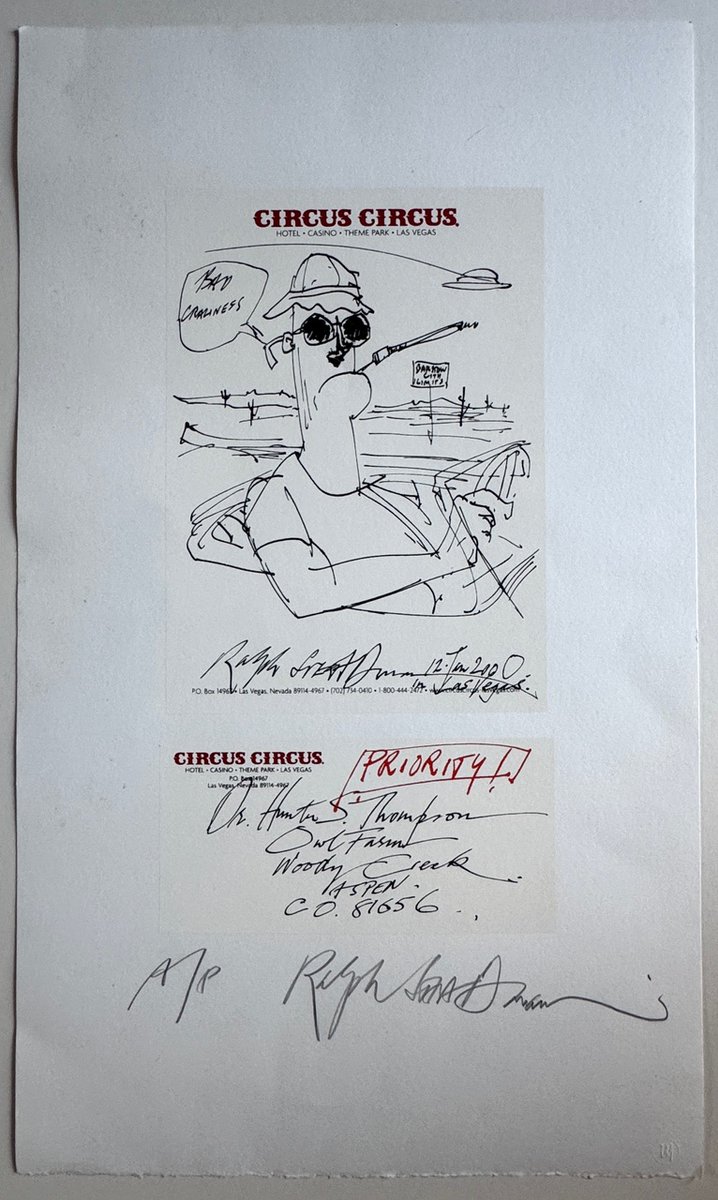 CIRCUS CIRCUS.
HOTEL • CASINO • THEME PARK • LAS VEGAS
BAD
CRAZINESS
BARSTOW
CITY
LIMITS
Ralph STEADman 12. Jan 2000
in Las Vegas.
P.O. Box 14967 • Las Vegas, Nevada 89114-4967 • (702) 734-0410 • 1-800-444-2472 •
CIRCUS CIRCUS.
HOTEL • CASINO • THEME PARK • LAS VEGAS
P.O. Box 14967
Las Vegas, Nevada 89114-4967
PRIORITY!
Dr. Hunter S. Thompson
Owl Farm
Woody Creek.
ASPEN.
CO. 81656
A/P Ralph STEADman